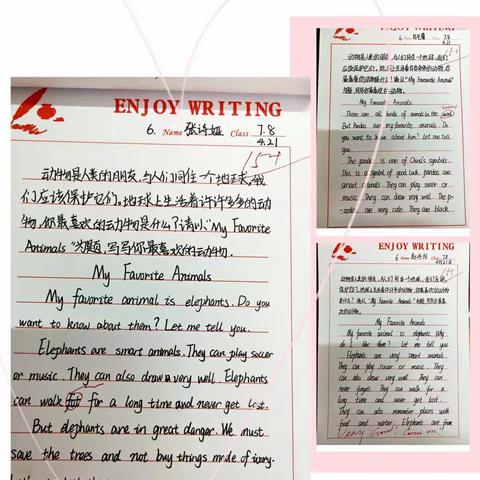 ENJOY WRITING
6. Name 张诗娅 Class 7.8
4.21
15-1
动物是人类的朋友,与人们同住一个地球,我
们应该保护它们。地球上生活着许许多多的动
物,你最喜欢的动物是什么?请以"My Favorite
Animals"为题,写写你最喜欢的动物.
My Favorite Animals
My favorite animal is elephants. Do you
want to know about them? Let me tell you.
Elephants are smart animals. They can play soccer
or music. They can also draw very well. Elephants
can walk for a long time and never get lost.
But elephants are in great danger. We must
save the trees and not buy things made of ivory.
ENJOY WRITING
6. Name Class 7.8
4.21
My Favorite Animals
There are all kinds of animals in the world.
But Pandas are my favorite animals. Do
you want to know about him? Let me tell
you.
The panda is one of China's symbols.
This is a symbol of good luck. pandas are
smart animals. They can play soccer or
music. They can draw very well. The p-
andas are very cute. They are black
ENJOY WRITING
6 Name Class 7.8
4月21日
My Favorite Animals
My favorite animal is elephants. Why
do I like them? Let me tell you.
Elephants are very smart animals.
They can play soccer or music. They
can also draw very well. They can
never forget. They can walk for a
long time and never get lost.
They can also remember places with
food and water. Elephants are from
Very Good! Come on!